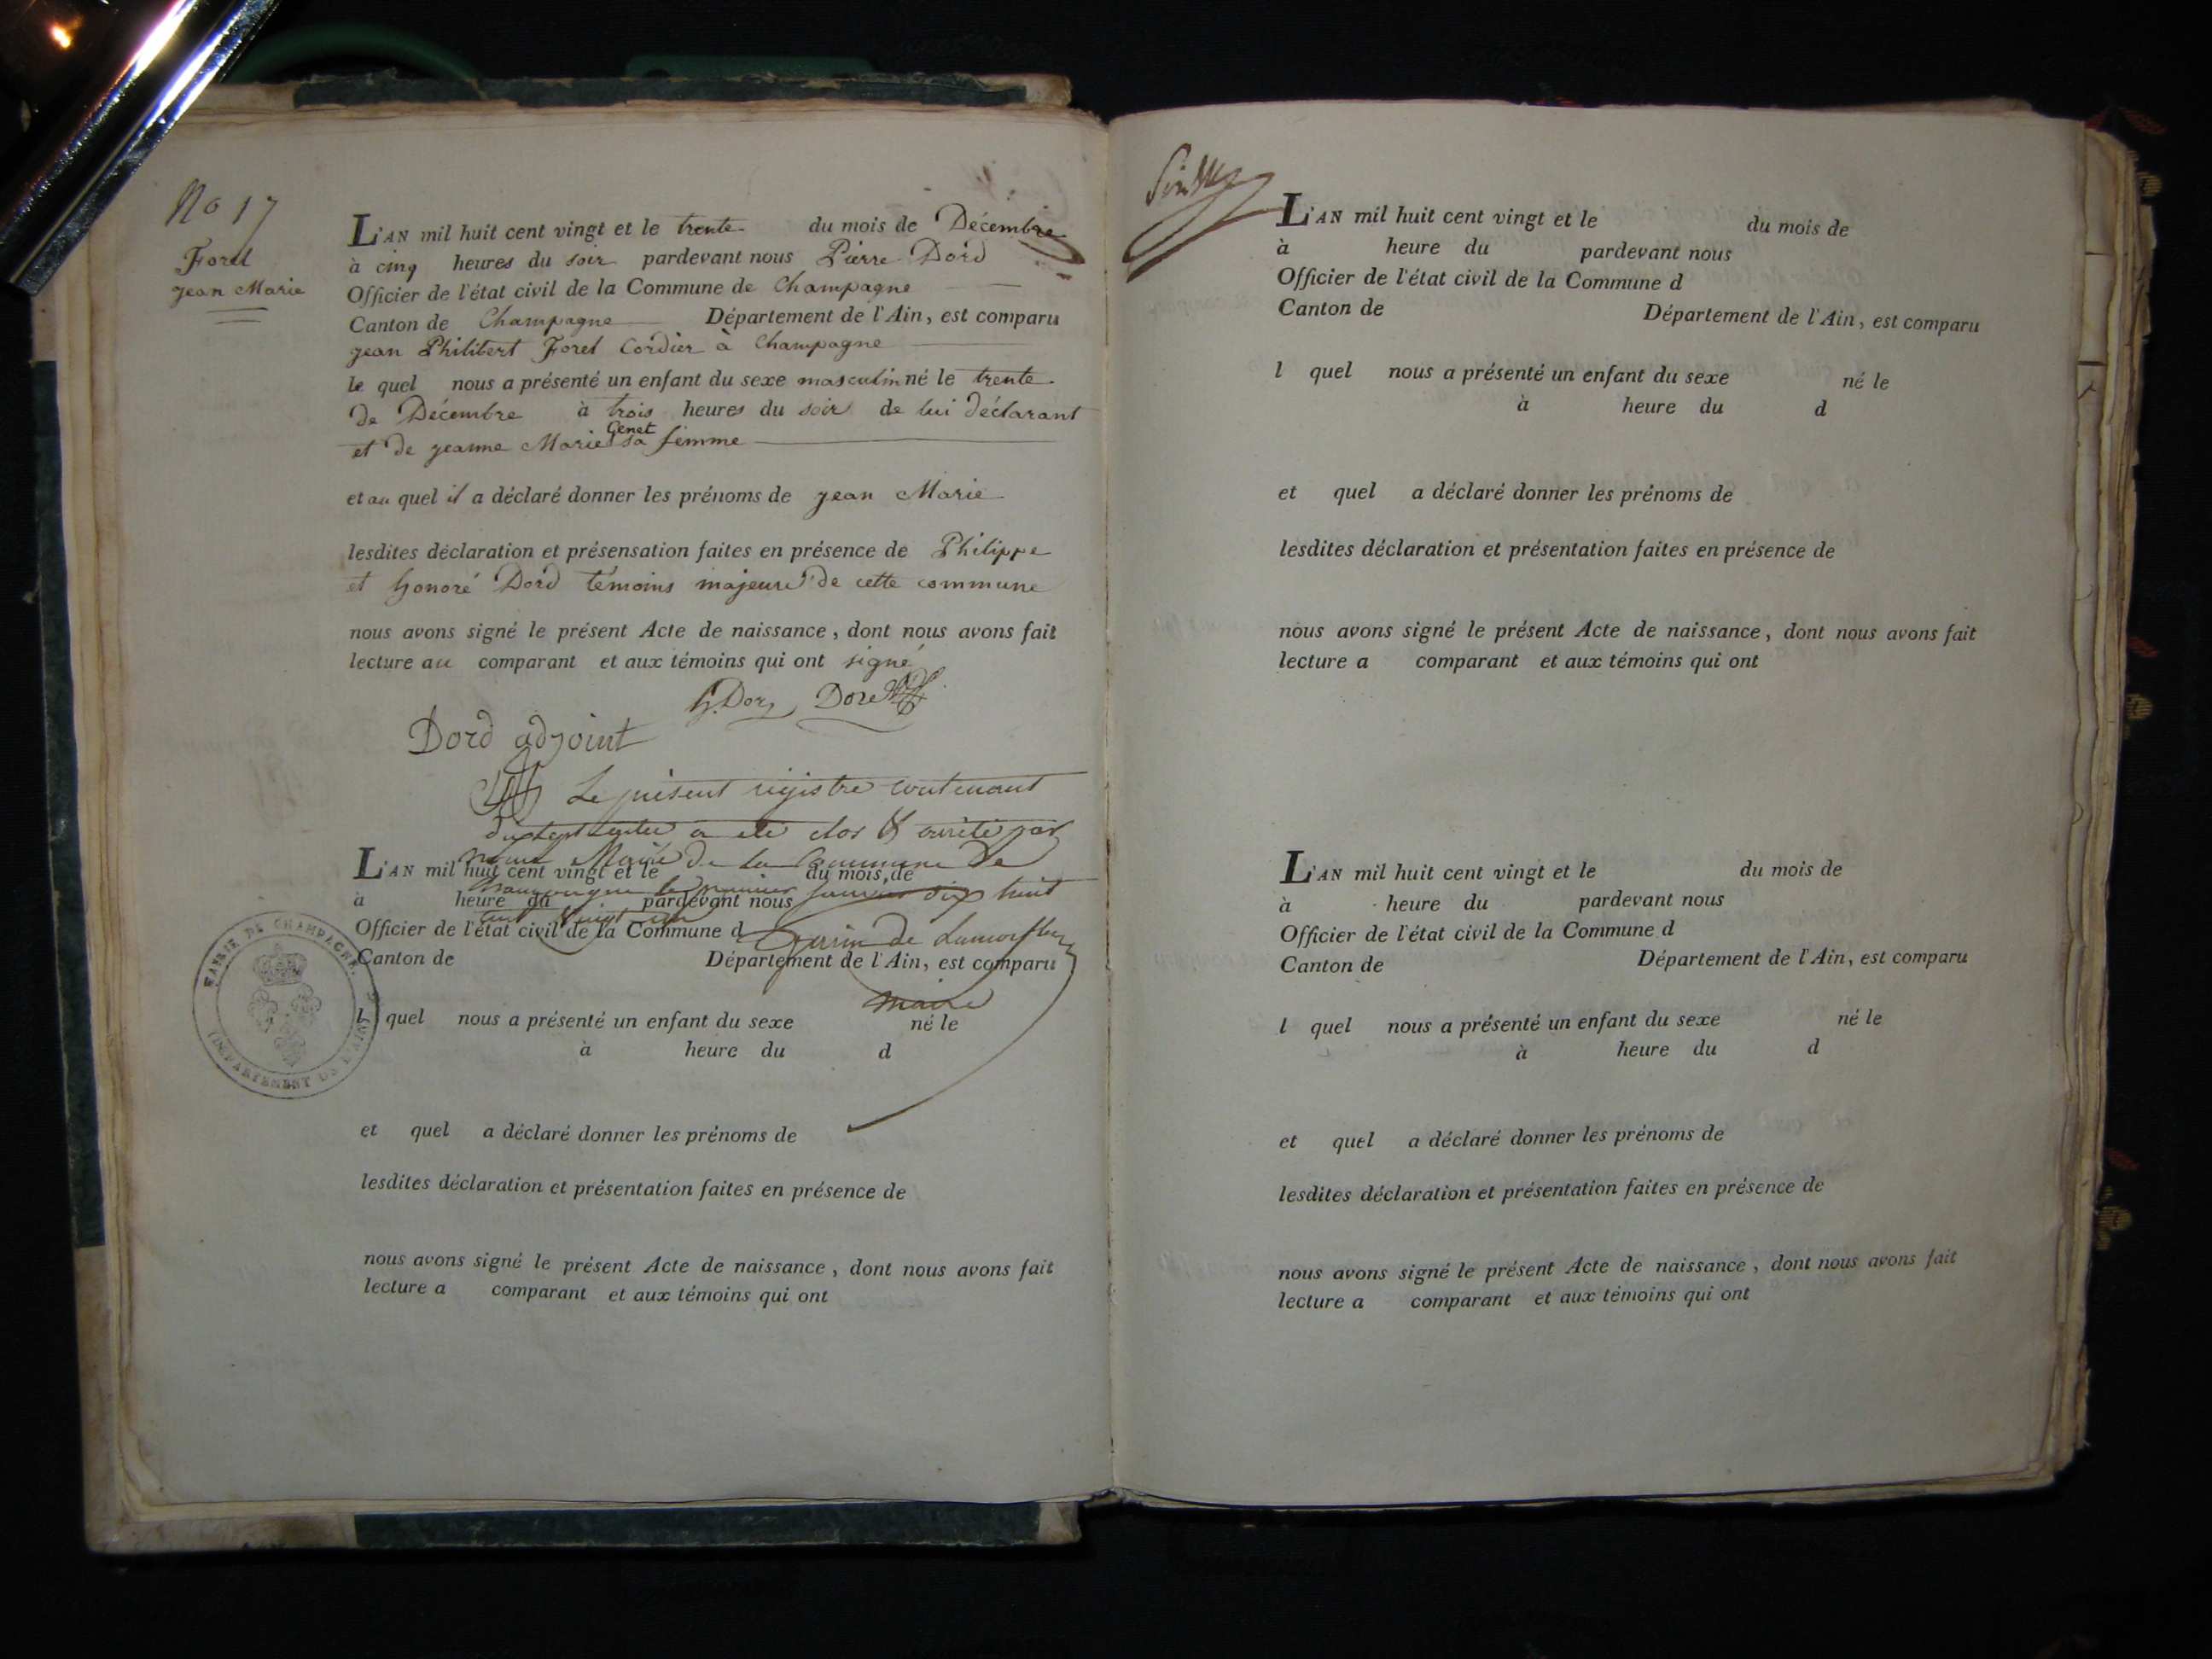 No 17
Foret
jean Marie
L'AN mil huit cent vingt et le trente du mois de Décembre
à cinq heures du soir pardevant nous Pierre Dord
Officier de l'état civil de la Commune de Champagne
Canton de Champagne Département de l'Ain, est comparu
jean Philibert Foret Cordier à Champagne
le quel nous a présenté un enfant du sexe masculin né le trente
de Décembre à trois heures du soir de lui déclarant
et de jeanne Marie Genet sa femme
et au quel il a déclaré donner les prénoms de jean Marie
lesdites déclaration et présensation faites en présence de Philippe
et honoré Dord témoins majeurs de cette commune
nous avons signé le présent Acte de naissance, dont nous avons fait
lecture au comparant et aux témoins qui ont signé
h. Dord Dord
Dord adjoint
Le présent registre contenant
dix sept actes a été clos & arrêté par
nous Maire de la Commune de
Champagne le premier janvier dix huit
cent vingt un
L'AN mil huit cent vingt et le du mois de
à heure du pardevant nous
Officier de l'état civil de la Commune d
Canton de Département de l'Ain, est comparu
maire
l quel nous a présenté un enfant du sexe né le
à heure du d
MAIRIE DE CHAMPAGNE.
(DÉPARTEMENT DE L'AIN)
et quel a déclaré donner les prénoms de
lesdites déclaration et présentation faites en présence de
nous avons signé le présent Acte de naissance, dont nous avons fait
lecture a comparant et aux témoins qui ont
L'AN mil huit cent vingt et le du mois de
à heure du pardevant nous
Officier de l'état civil de la Commune d
Canton de Département de l'Ain, est comparu
l quel nous a présenté un enfant du sexe né le
à heure du d
et quel a déclaré donner les prénoms de
lesdites déclaration et présentation faites en présence de
nous avons signé le présent Acte de naissance, dont nous avons fait
lecture a comparant et aux témoins qui ont
L'AN mil huit cent vingt et le du mois de
à heure du pardevant nous
Officier de l'état civil de la Commune d
Canton de Département de l'Ain, est comparu
l quel nous a présenté un enfant du sexe né le
à heure du d
et quel a déclaré donner les prénoms de
lesdites déclaration et présentation faites en présence de
nous avons signé le présent Acte de naissance, dont nous avons fait
lecture a comparant et aux témoins qui ont